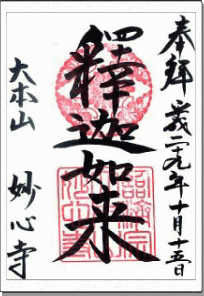 奉拝 平成二十九年十月十五日
釋迦如来
大本山 妙心寺